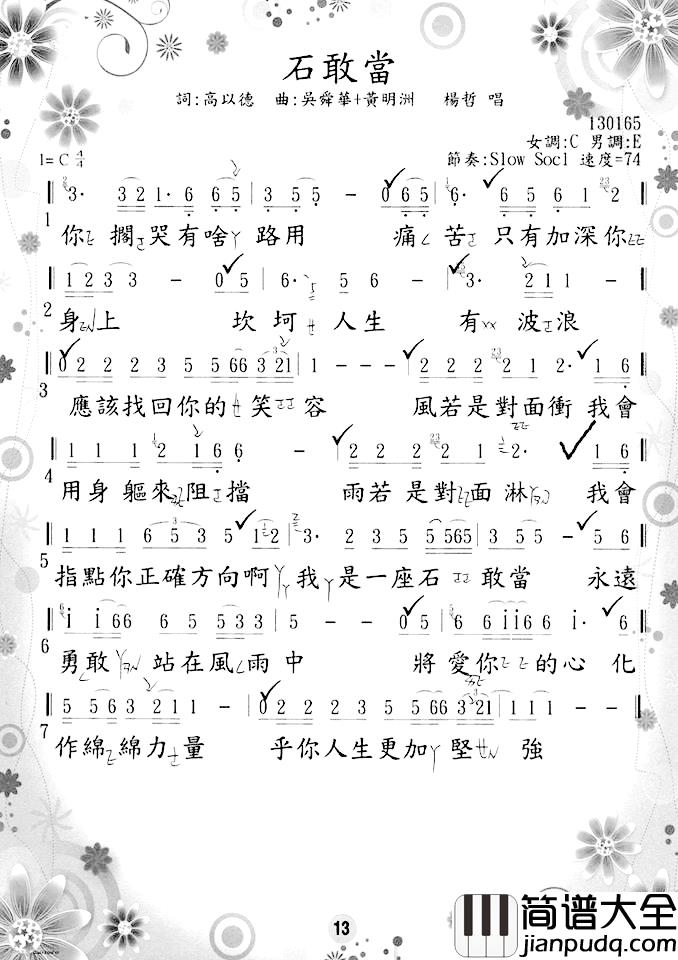 石敢當
詞:高以德 曲:吳舜華+黃明洲 楊哲 唱
130165
女調:C 男調:E
1=C 4/4
節奏:Slow Socl 速度=74
3· 32 1·6 65 | 35 5 - 065 | 6· 6 56 1 2
1 你 擱 哭有啥 路用 痛 苦 只有加深你
1 2 3 3 - 05 | 6· 5 6 - | 3· 2 1 1
2 身上 坎坷 人生 有 波浪
0 2 2 2 3 5 5 66 3 21 | 1 - - - | 2 2 2 2 1 2· 1 6
3 應該找回你的 笑 容 風若是對面衝 我會
1 1 1 2 1 6 6· - | 2 2 2 2 1 2· 1 6
4 用身 軀來 阻 擋 雨若 是對 面淋 我會
1 1 1 6 5 3 5 1 2 | 3· 2 2 3 5 5 565 | 3 5 5 - 5 6
5 指點你正確方向啊 我 是一座石 敢當 永遠
i i 6 6 6 5 5 3 3 - - 05 | 6 6 i i 6 i· 6
6 勇敢 站在風 雨中 將 愛你 的心 化
5 5 6 3 3 2 1 1 - | 0 2 2 2 3 5 5 66 3 21 | 1 - - -
7 作綿 綿力 量 乎你人生更加 堅 強
13
简谱大全
jianpudq.com